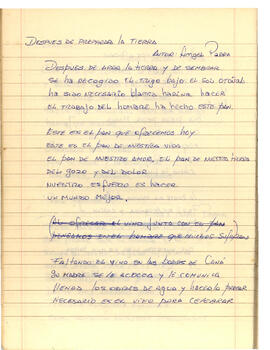 DESPUES DE PREPARAR LA TIERRA
AUTOR ANGEL PARRA
DESPUES DE ARAR LA TIERRA Y DE SEMBRAR
SE HA RECOGIDO EL TRIGO BAJO EL SOL OTOÑAL
HA SIDO NECESARIO BLANCA HARINA HACER
EL TRABAJO DEL HOMBRE HA HECHO ESTE PAN.
ESTE ES EL PAN QUE OFRECEMOS HOY
ESTE ES EL PAN DE NUESTRA VIDA
EL PAN DE NUESTRO AMOR, EL PAN DE NUESTRA TIERRA
DEL GOZO Y DEL DOLOR
NUESTRO ESFUERZO ES HACER
UN MUNDO MEJOR.
(AL OFRECER EL VINO JUNTO CON EL PAN
PENSAMOS EN EL HOMBRE QUE MUCHOS
FALTANDO EL VINO EN LAS BODAS DE CANÁ
SU MADRE SE LE ACERCA Y LE COMUNICA
LLENAD LOS ODRES DE AGUA Y HACEDLO PROBAR
NECESARIO ES EL VINO PARA CELEBRAR